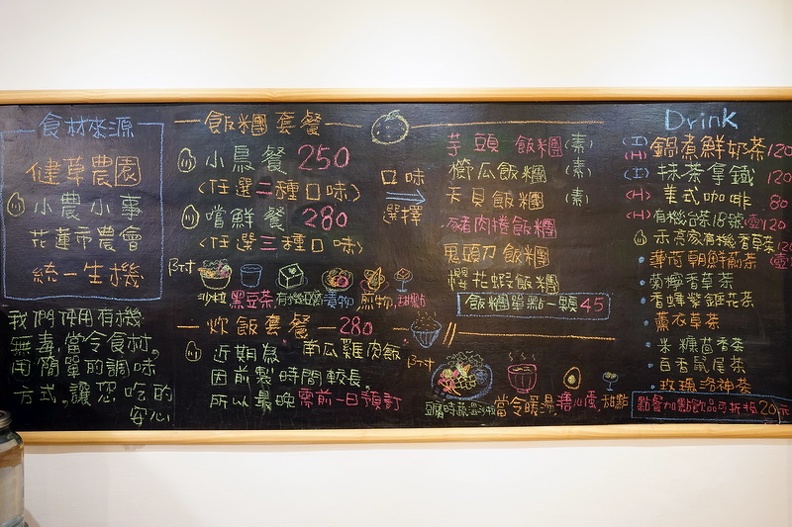 食材來源
健草農園
小農小事
花蓮市農會
統一生機
我們使用有機
無毒,當令食材,
用簡單的調味
方式,讓您吃的
安心
飯糰套餐
小鳥餐 250
(任選二種口味)
嚐鮮餐 280
(任選三種口味)
沙拉,黑豆茶,有機豆腐,漬物,煎物,甜點
炊飯套餐-280
近期為 南瓜雞肉飯
因前製時間較長,
所以最晚需前一日預訂
口味
選擇
芋頭 飯糰 (素)
櫛瓜飯糰 (素)
天貝飯糰 (素)
豬肉捲飯糰
鬼頭刀飯糰
櫻花蝦飯糰
飯糰單點一顆45
當令暖湯,糖心蛋,甜點
Drink
(I)
(H) 鍋煮鮮奶茶120
(I) 抹茶拿鐵 120
(H) 美式咖啡 80
(H) 有機台茶18號(壺)120
薄荷朝鮮薊茶(壺)
菊檸香草茶
香蜂紫錐花茶
薰衣草茶
米糠茴香茶
百香鼠尾茶
玫瑰洛神茶
點餐加點飲品可折抵20元